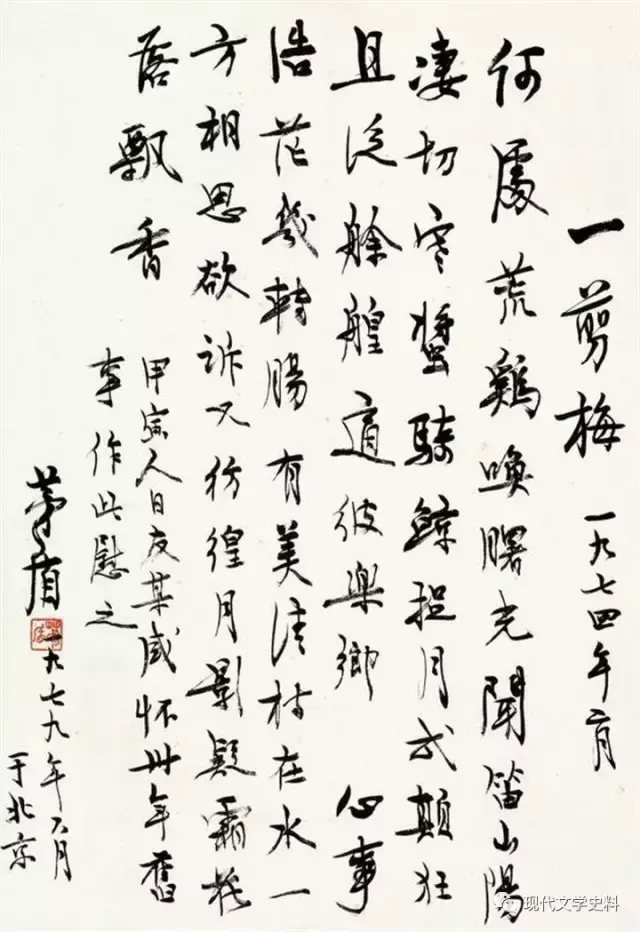 一剪梅 一九七四年二月
何處荒鷄喚曙光聞笛山陽
淒切寒螿騎鯨捉月忒顛狂
且泛艅艎適彼樂鄉 心事
浩茫幾轉腸 有美清在水一
方相思欲訴又彷徨月影疑霜花
落飄香
甲寅人日友某感懷卅年舊
事作此慰之
茅盾
一九七九年六月
于北京
现代文学史料